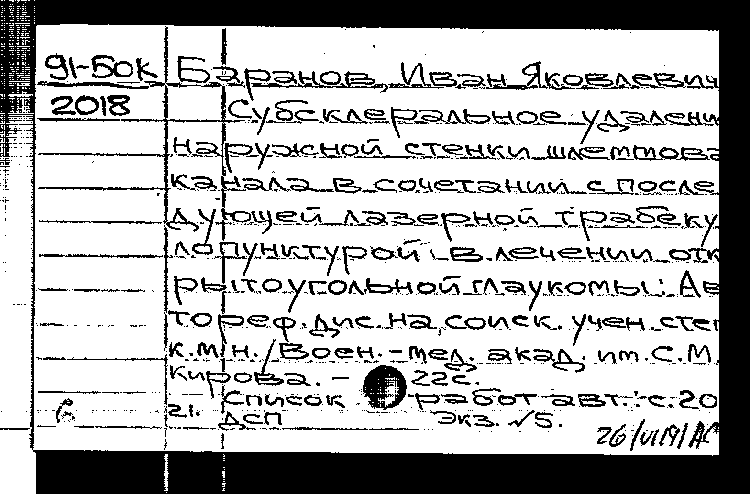 91-БОК Баранов, Иван Яковлевич
2018 Субсклеральное удалени
наружной стенки шлеммова
канала в сочетании с после
дующей лазерной трабеку
лопунктурой в лечении отк
рытоугольной глаукомы: Ав
тореф. дис. на соиск. учен. степ
к.м.н. / Воен.-мед. акад. им. С.М.
Кирова. – 22с.
Список работ авт.: с. 20
21. ДСП Экз. √5.